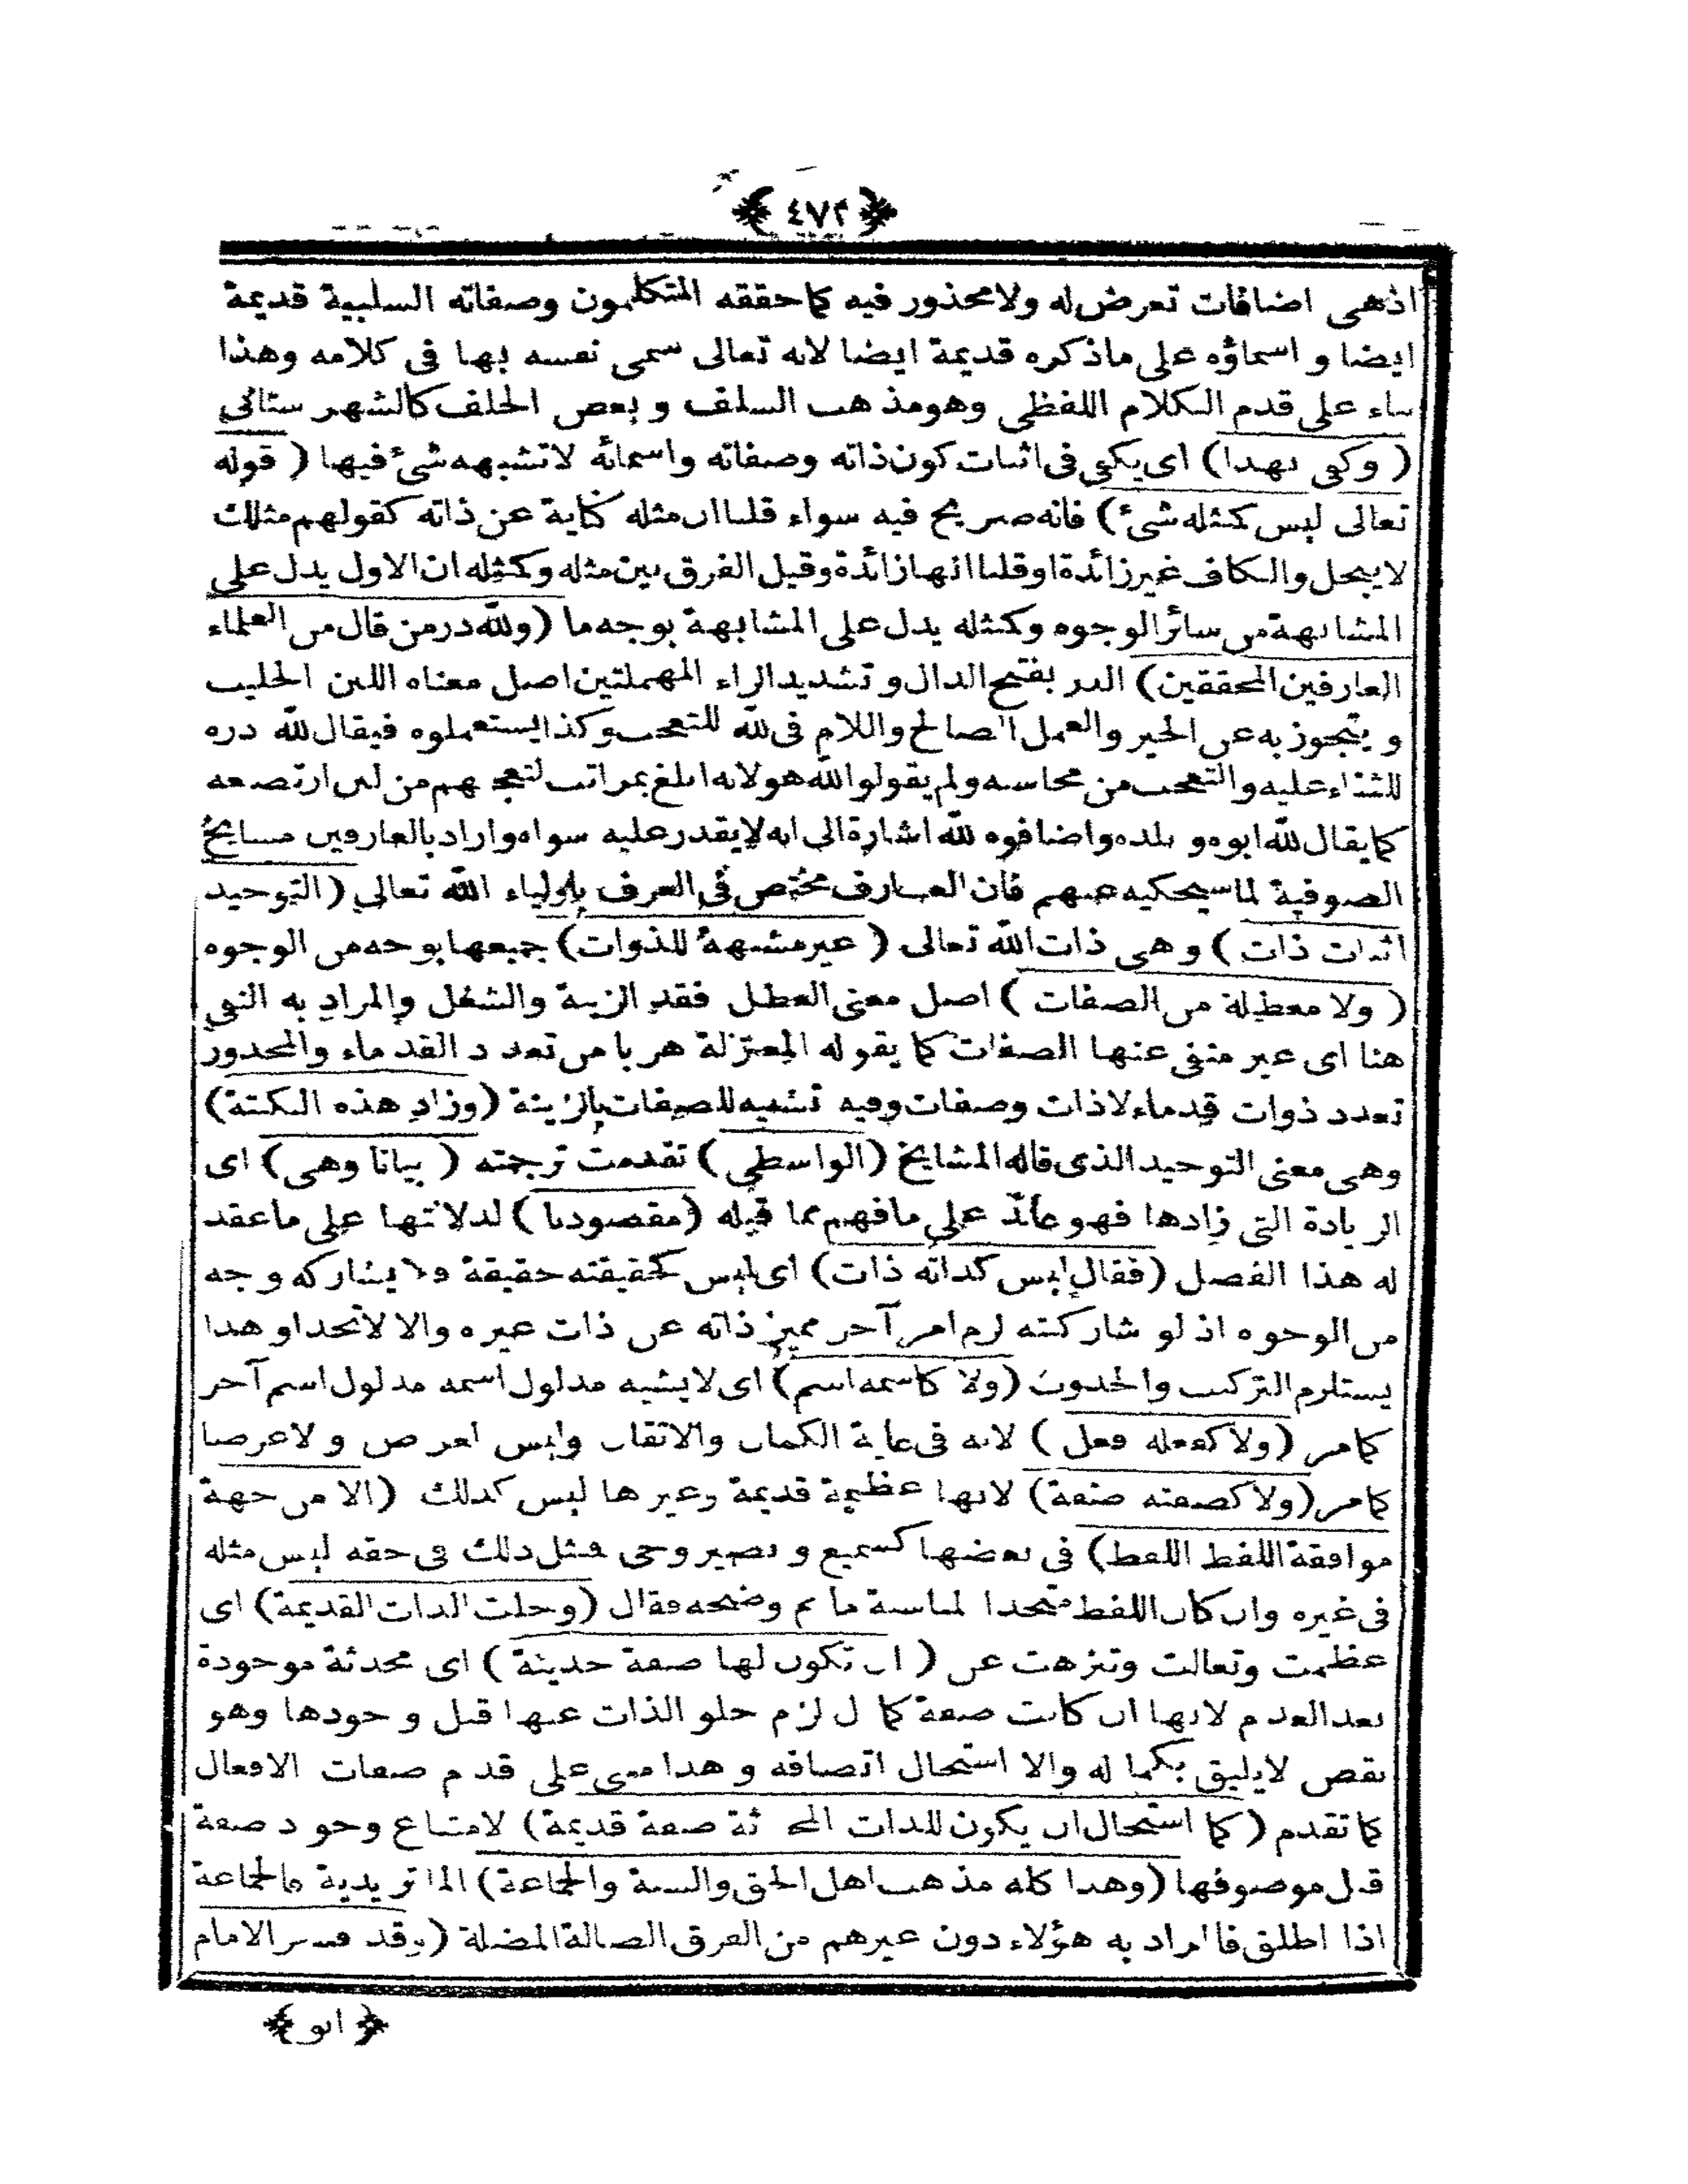 ٤٧٢
اذهى اضافات تعرض له ولا محذور فيه كما حققه المتكلمون وصفاته السلبية قديمة
ايضا و اسماؤه على ماذكره قديمة ايضا لانه تعالى سمى نفسه بها فى كلامه وهذا
بناء على قدم الكلام اللفظى وهومذهب السلف و بعض الخلف كالشهرستانى
( وكفى بهذا) اى يكفى فى اثبات كون ذاته وصفاته واسمائه لاتشبهه شئ فيها ( قوله
تعالى ليس كمثله شئ ) فانه صريح فيه سواء قلنا ان مثله كناية عن ذاته كقولهم مثلك
لايبخل والكاف غير زائدة اوقلنا انها زائدة وقيل الفرق بين مثله وكمثله ان الاول يدل على
المشابهة من سائر الوجوه وكمثله يدل على المشابهة بوجه ما (ولله در من قال من العلماء
العارفين المحققين) الدر بفتح الدال و تشديد الراء المهملتين اصل معناه اللبن الحليب
و يتجوز به عن الخير والعمل الصالح واللام فى لله للتعجب وكذا يستعملوه فيقال لله دره
للثناء عليه والتعجب من محاسنه ولم يقولوا لله هو لانه ابلغ بمراتب لتعجبهم من لبن ارتضعه
كما يقال لله ابوه و بلده واضافوه لله اشارة الى انه لايقدر عليه سواه واراد بالعارفين مشايخ
الصوفية لما سيحكيه عنهم فان العارف مختص فى العرف باولياء الله تعالى (التوحيد
اثبات ذات ) وهى ذات الله تعالى ( غير مشبهة للذوات) جميعها بوجه من الوجوه
( ولا معطلة من الصفات ) اصل معنى العطل فقد الزينة والشغل والمراد به النفى
هنا اى غير منفى عنها الصفات كما يقوله المعتزلة هربا من تعدد القدماء والمحذور
تعدد ذوات قدماء لاذات وصفات وفيه تشبيه للصفات بالزينة (وزاد هذه النكتة)
وهى معنى التوحيد الذى قاله المشايخ (الواسطى ) تقدمت ترجمته ( بيانا وهى) اى
الزيادة التى زادها فهو عائد على مافهم مما قبله (مقصودنا ) لدلالتها على ماعقد
له هذا الفصل (فقال ليس كذاته ذات) اى ليس كحقيقته حقيقة ولا يشاركه وجه
من الوجوه اذ لو شاركته لزم امر آخر مميز ذاته عن ذات غيره والا لاتحدا وهذا
يستلزم التركيب والحدوث (ولا كاسمه اسم) اى لايشبه مدلول اسمه مدلول اسم آخر
كامر (ولا كفعله فعل ) لانه فى غاية الكمال والاتقان وليس لعرض و لاغرضا
كامر (ولا كصفته صفة) لانها عظيمة قديمة وغيرها ليس كذلك (الا من جهة
موافقة اللفظ اللفظ) فى بعضها كسميع و بصير وحى فمثل ذلك فى حقه ليس مثله
فى غيره وان كان اللفظ متحدا لمناسبة ما ثم وضحه فقال (وجلت الذات القديمة) اى
عظمت وتعالت وتنزهت عن ( ان تكون لها صفة حديثة ) اى محدثة موجودة
بعد العدم لانها ان كانت صفة كمال لزم خلو الذات عنها قبل وجودها وهو
نقص لايليق بكماله والا استحال اتصافه و هذا مبنى على قدم صفات الافعال
كما تقدم ( كما استحال ان يكون للذات المحدثة صفة قديمة) لامتناع وجود صفة
قبل موصوفها (وهذا كله مذهب اهل الحق والسنة والجماعة) الماتريدية فالجماعة
اذا اطلق فالمراد به هؤلاء دون غيرهم من الفرق الضالة المضلة (وقد فسر الامام
ابو